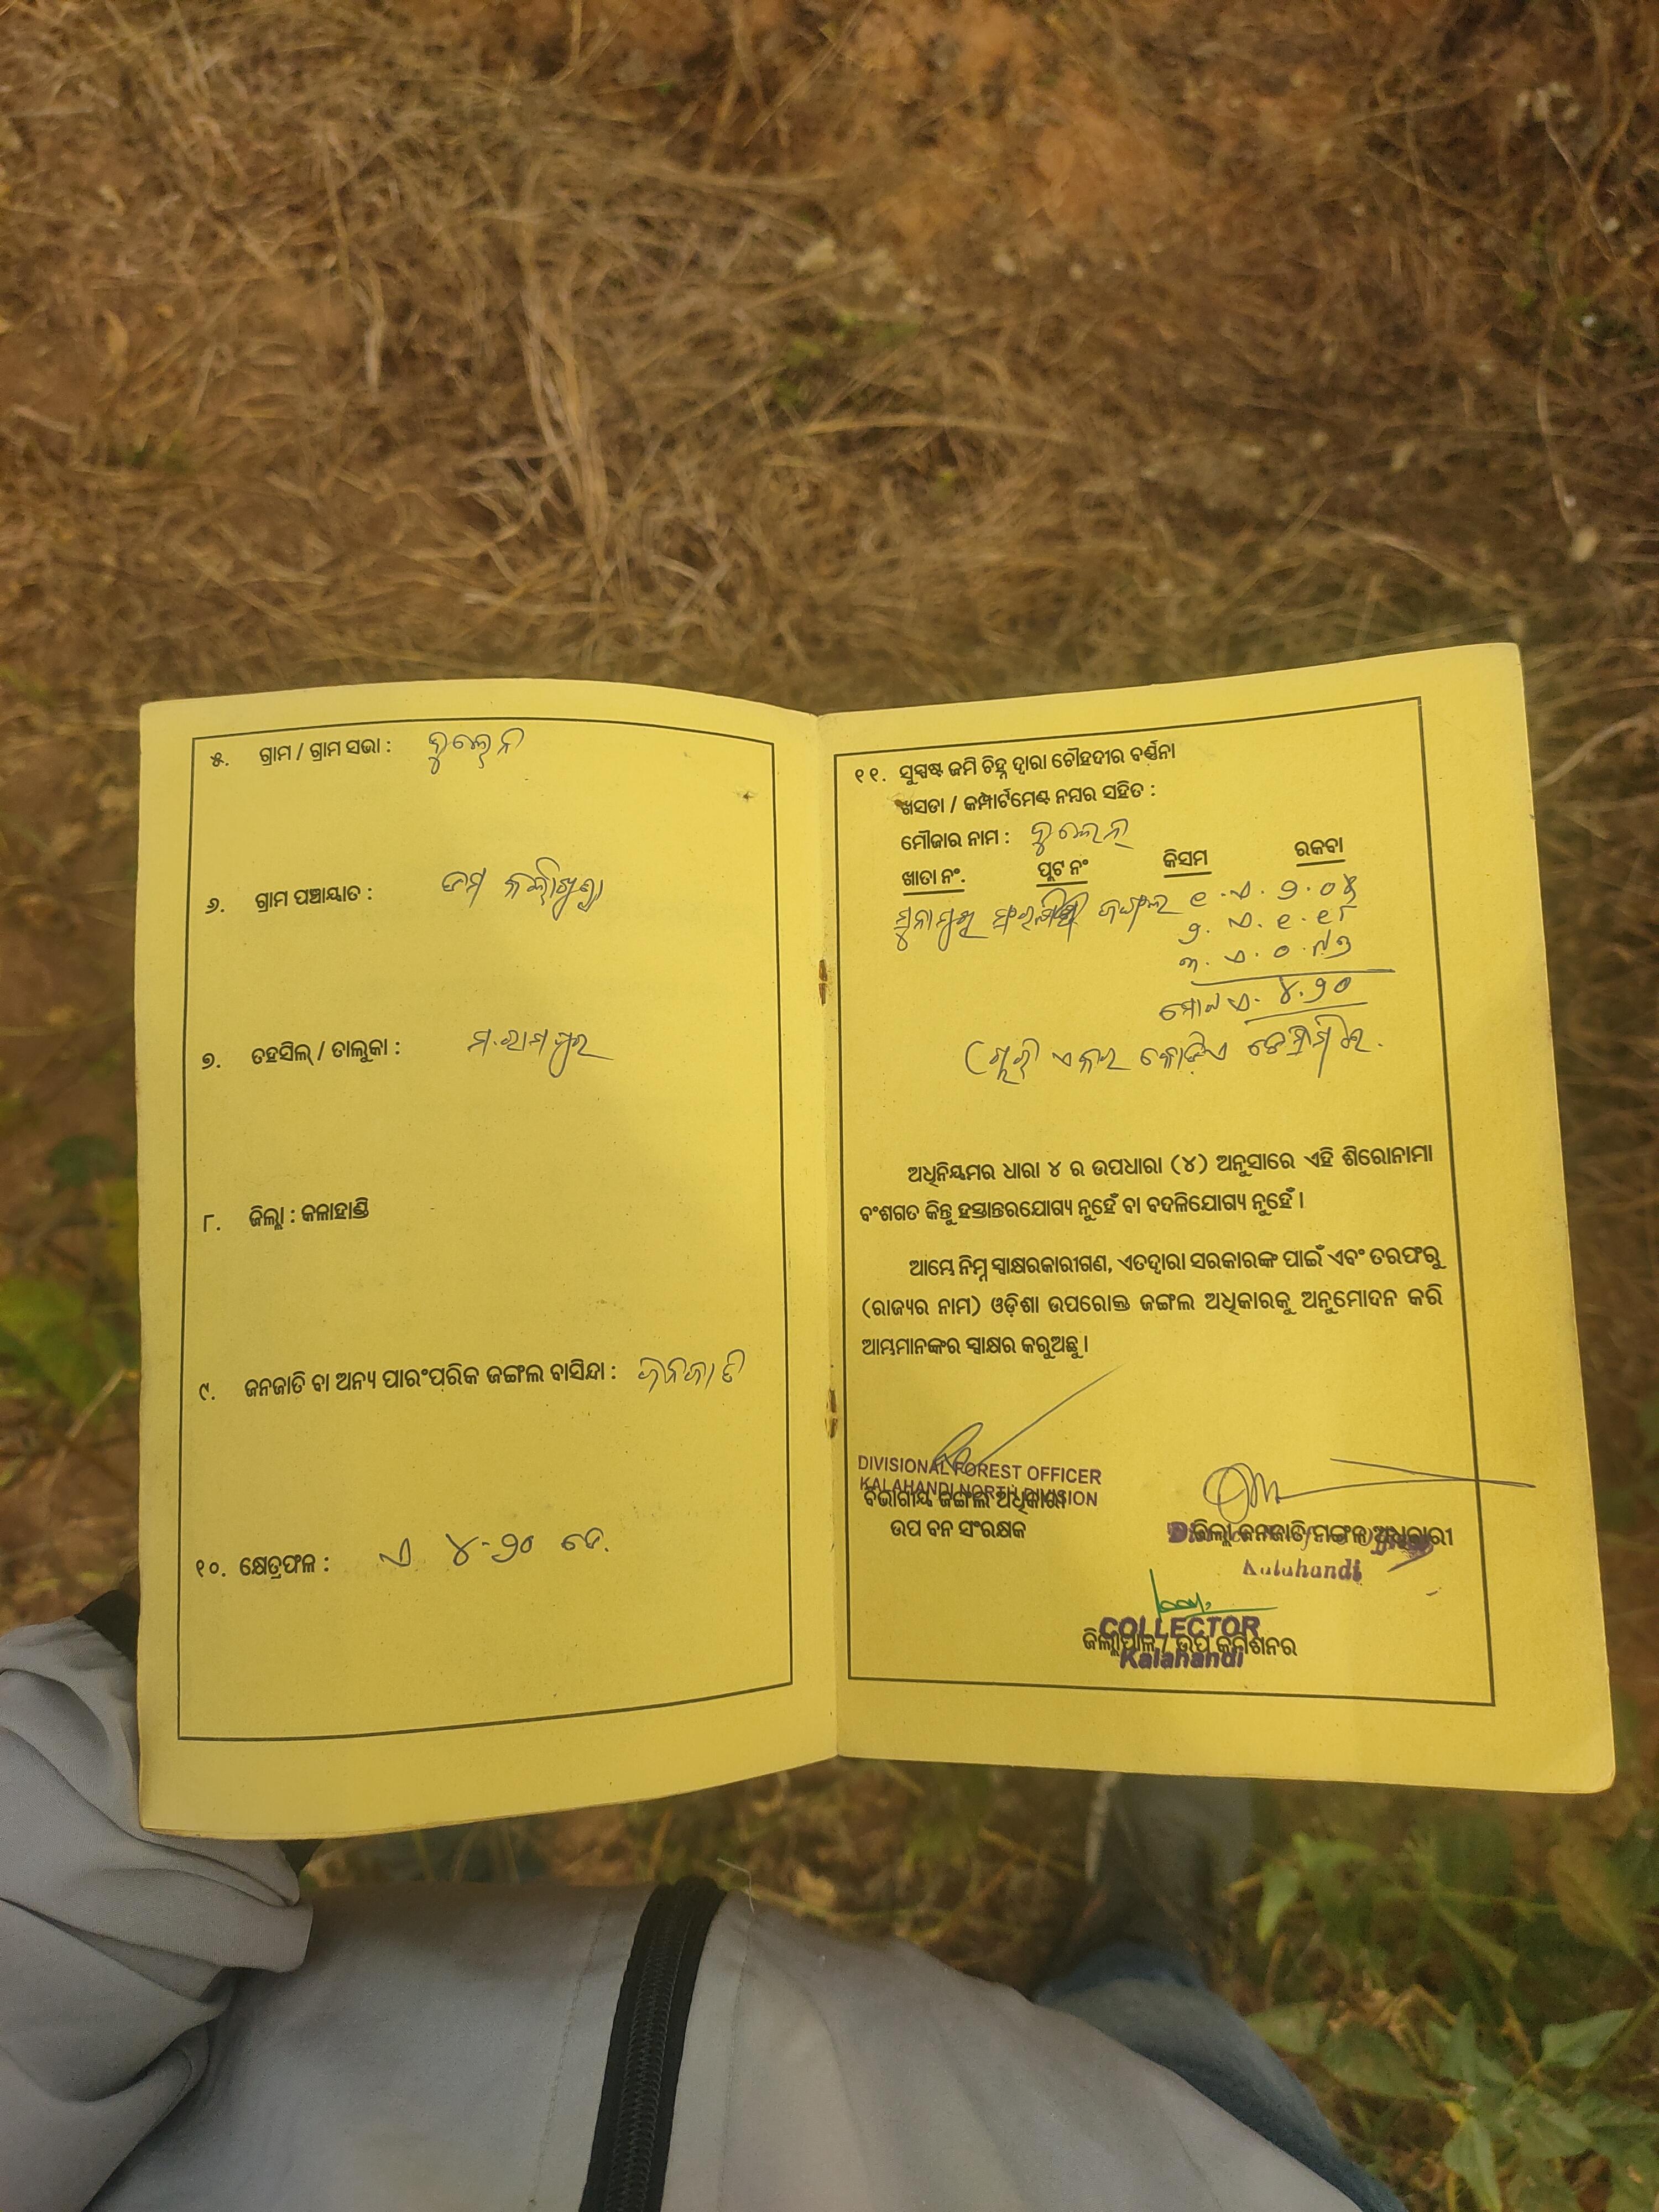 ୫. ଗ୍ରାମ / ଗ୍ରାମ ସଭା :
୬. ଗ୍ରାମ ପଞ୍ଚାୟାତ :
୭. ତହସିଲ୍ / ତାଲୁକା : ମ.ରାମପୁର
୮. ଜିଲ୍ଲା : କଳାହାଣ୍ଡି
୯. ଜନଜାତି ବା ଅନ୍ୟ ପାରଂପରିକ ଜଙ୍ଗଲ ବାସିନ୍ଦା : ଜନଜାତି
୧୦. କ୍ଷେତ୍ରଫଳ : ଏ ୪-୨୦ ଡେ.
୧୧. ସୁସ୍ପଷ୍ଟ ଜମି ଚିହ୍ନ ଦ୍ଵାରା ଚୌହଦୀର ବର୍ଣ୍ଣନା
ଖସଡା / କମ୍ପାର୍ଟମେଣ୍ଟ ନମ୍ବର ସହିତ :
ମୌଜାର ନାମ :
ଖାତା ନଂ. ପ୍ଲଟ ନଂ କିସମ ରକବା
ଜଙ୍ଗଲ
ମୋଟ ଏ. ୪.୨୦
ଅଧିନିୟମର ଧାରା ୪ ର ଉପଧାରା (୪) ଅନୁସାରେ ଏହି ଶିରୋନାମା
ବଂଶଗତ କିନ୍ତୁ ହସ୍ତାନ୍ତରଯୋଗ୍ୟ ନୁହେଁ ବା ବଦଳିଯୋଗ୍ୟ ନୁହେଁ ।
ଆମ୍ଭେ ନିମ୍ନ ସ୍ଵାକ୍ଷରକାରୀଗଣ, ଏତଦ୍ଵାରା ସରକାରଙ୍କ ପାଇଁ ଏବଂ ତରଫରୁ
(ରାଜ୍ୟର ନାମ) ଓଡ଼ିଶା ଉପରୋକ୍ତ ଜଙ୍ଗଲ ଅଧିକାରକୁ ଅନୁମୋଦନ କରି
ଆମ୍ଭମାନଙ୍କର ସ୍ଵାକ୍ଷର କରୁଅଛୁ ।
DIVISIONAL FOREST OFFICER
KALAHANDI NORTH DIVISION
ବିଭାଗୀୟ ଜଙ୍ଗଲ ଅଧିକାରୀ
ଉପ ବନ ସଂରକ୍ଷକ
ଜିଲ୍ଲା ଜନଜାତି ମଙ୍ଗଳ ଅଧିକାରୀ
Kalahandi
COLLECTOR
ଜିଲ୍ଲାପାଳ / ଉପ କମିଶନର
Kalahandi